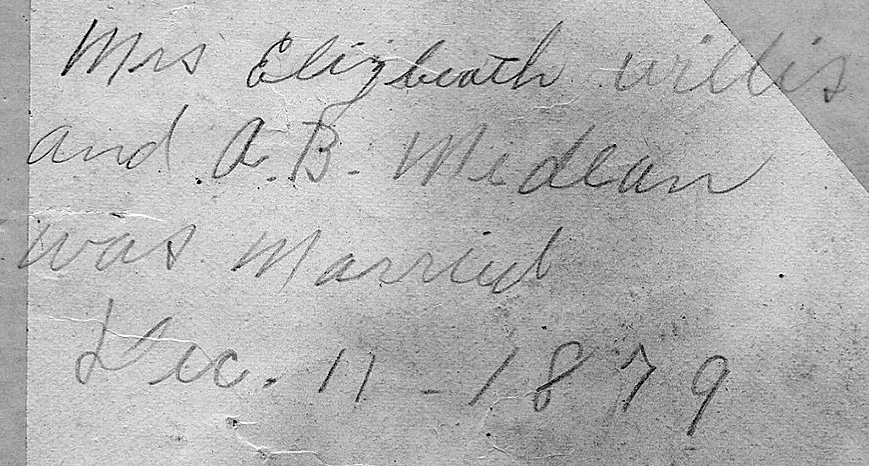 Mrs Elizbeath willis
and A. B. Medlean
was Married
Dec. 11 - 1879